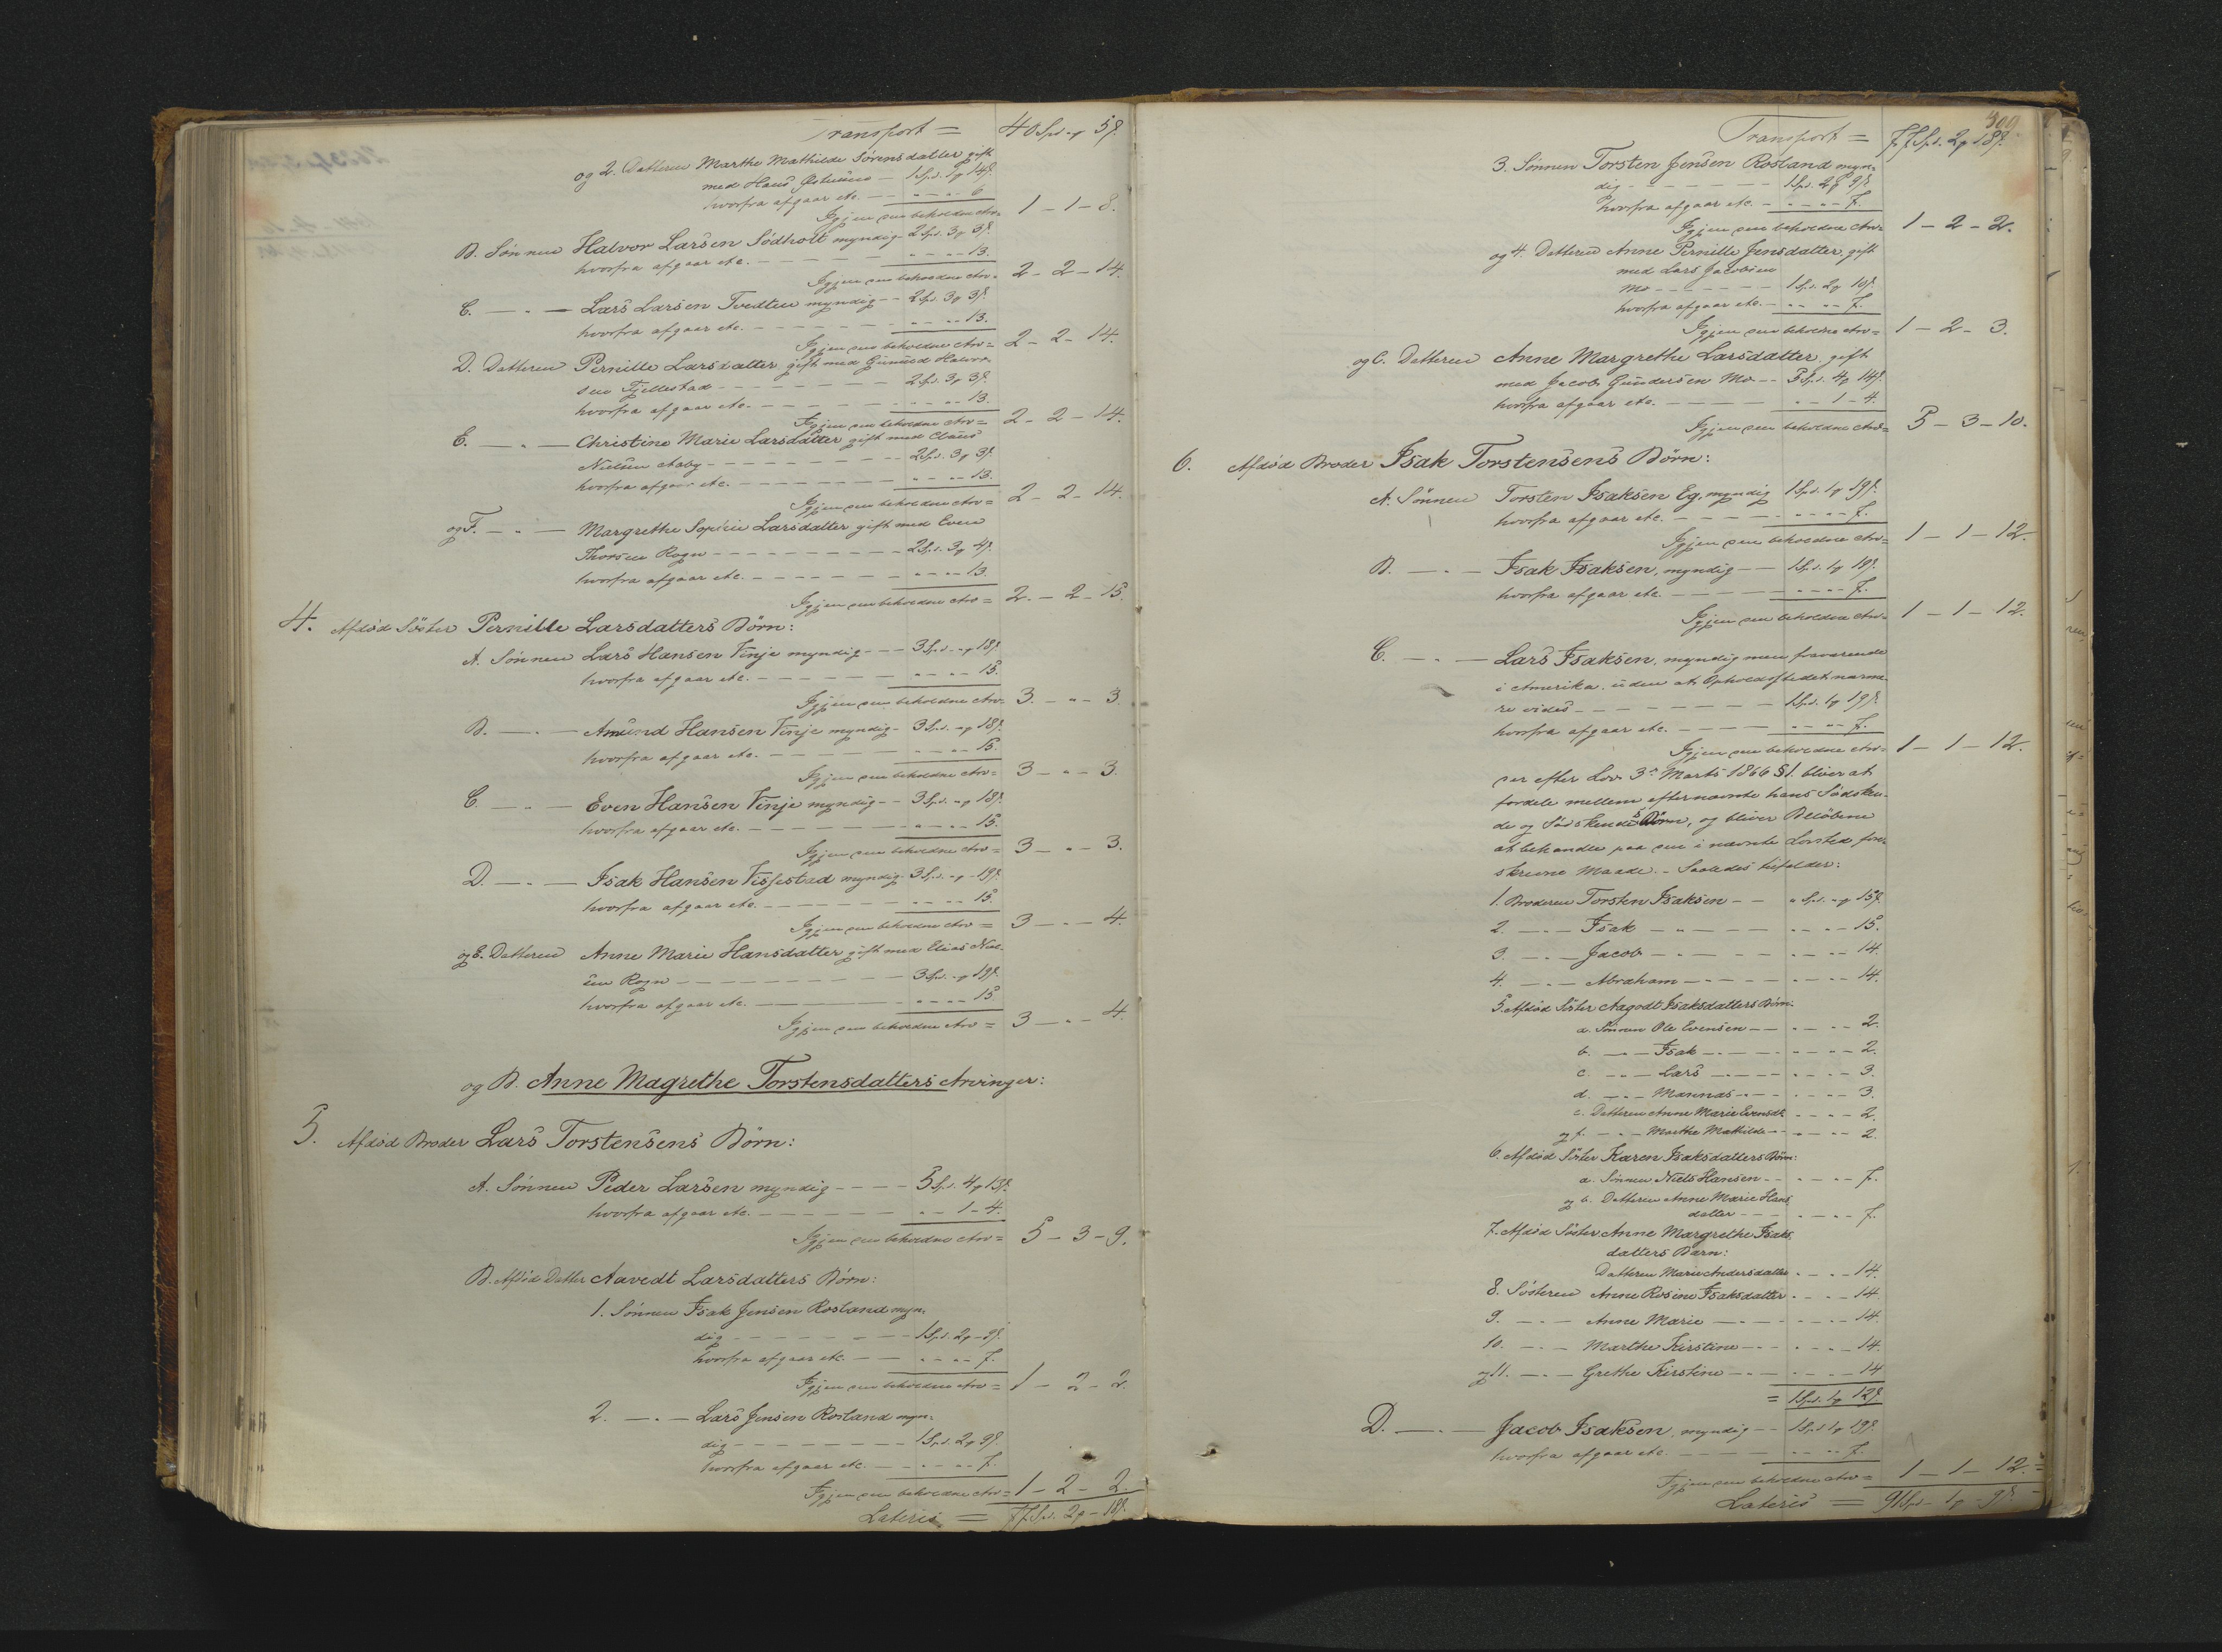 Transport = 40 Spd. " 5 ß.
og 2. Datteren Marthe Mathilde Sörensdatter gift
med Hans — 1 Spd. 1 14 ß.
hvorfra afgaar etc. — " " 6
Igjen den beholdne Arv = 1 - 1 - 8.
B. Sönnen Halvor Larsen Södholt myndig - 2 Spd. 3 3 ß.
hvorfra afgaar etc. — " " 13.
Igjen den beholdne Arv = 2 - 2 - 14.
C. — " — Lars Larsen Tvedten myndig - 2 Spd. 3 3 ß.
hvorfra afgaar etc. — " " 13.
Igjen den beholdne Arv = 2 - 2 - 14.
D. Datteren Pernille Larsdatter gift med Gunuld Halvor-
sen Fjellestad — 2 Spd. 3 3 ß.
hvorfra afgaar etc. — " " 13.
Igjen den beholdne Arv = 2 - 2 - 14.
E. — " — Christine Marie Larsdatter gift med Claus
Nielsen Aaby — 2 Spd. 3 3 ß.
hvorfra afgaar etc. — " " 13.
Igjen den beholdne Arv = 2 - 2 - 14.
og F. — " — Margrethe Sophie Larsdatter gift med Even
Thorsen Rogn — 2 Spd. 3 4 ß.
hvorfra afgaar etc. — " " 13.
Igjen den beholdne Arv = 2 - 2 - 15.
4. Afdöd Söster Pernille Larsdatters Börn:
A. Sönnen Lars Hansen Vinje myndig — 3 Spd. " 18 ß.
hvorfra afgaar etc. — " " 15.
Igjen den beholdne Arv = 3. - " - 3.
B. — " — Amund Hansen Vinje myndig - 3 Spd. " 18 ß.
hvorfra afgaar etc. — " " 15.
Igjen den beholdne Arv = 3 - " - 3.
C. — " — Even Hansen Vinje myndig - 3 Spd. " 18 ß.
hvorfra afgaar etc. — " " 15.
Igjen den beholdne Arv = 3 - " - 3.
D. — " — Isak Hansen Vissestad myndig - 3 Spd. " 19 ß.
hvorfra afgaar etc. — " " 15.
Igjen den beholdne Arv = 3 - " - 4.
og E. Datteren Anne Marie Hansdatter gift med Elias Niel-
sen Rogn — 3 Spd. " 19 ß.
hvorfra afgaar etc. — " " 15
Igjen den beholdne Arv = 3 - " - 4.
og B. Anne Magrethe Torstensdatters Arvinger:
5. Afdöd Broder Lars Torstensens Börn:
A. Sönnen Peder Larsen myndig — 5 Spd. 4 13 ß.
hvorfra afgaar etc. — " 1 - 4.
Igjen den beholdne Arv = 5 - 3 - 9.
B. Afdöd Datter Aavedt Larsdatters Börn:
1. Sönnen Isak Jensen Rosland myn-
dig — 1 Spd. 2 9 ß.
hvorfra afgaar etc. — " " 7.
Igjen den beholdne Arv = 1 - 2 - 2.
2. — " — Lars Jensen Rosland myn-
dig — 1 Spd. 2 9 ß.
hvorfra afgaar etc. — " " 7.
Igjen den beholdne Arv = 1 - 2 - 2.
Lateris = 77 Spd. 2 - 18 ß.
309.
Transport = 77 Spd. 2 18 ß.
3. Sönnen Torsten Jensen Rosland myn-
dig — 1 Spd. 2 9 ß.
hvorfra afgaar etc. — " " 7.
Igjen den beholdne Arv = 1 - 2 - 2.
og 4. Datteren Anne Pernille Jensdatter, gift
med Lars Jacobsen
Mo — 1 Spd. 2 10 ß.
hvorfra afgaar etc. — " " 7.
Igjen den beholdne Arv = 1 - 2 - 3.
og C. Datteren Anne Margrethe Larsdatter, gift
med Jacob Gundersen Mo - 5 Spd. 4 14 ß.
hvorfra afgaar etc. — " 1 - 4.
Igjen den beholdne Arv = 5 - 3 - 10.
6. Afdöd Broder Isak Torstensens Börn:
A. Sönnen Torsten Isaksen Eg, myndig 1 Spd. 1 19 ß.
hvorfra afgaar etc. — " " 7.
Igjen den beholdne Arv = 1 - 1 - 12.
B. — " — Isak Isaksen, myndig — 1 Spd. 1 19 ß.
hvorfra afgaar etc. — " " 7.
Igjen den beholdne Arv = 1 - 1 - 12.
C. — " — Lars Isaksen, myndig men fraværende
i Amerika, uden at Opholdstedet nærme-
re vides — 1 Spd. 1 19 ß.
hvorfra afgaar etc. — " " 7.
Igjen den beholdne Arv = 1 - 1 - 12.
der efter Lov 3die Marts 1866 § 1. bliver at
fordele mellem efternævnte hans Södsken-
de og Södskendes Börn, og bliver Belöbene
at behandle paa den i nævnte Lovsted fore-
skrevne Maade. - Saaledes tilfalder:
1. Broderen Torsten Isaksen — " Spd. " 15 ß.
2. — " — Isak — " — " " 15.
3. — " — Jacob — " — " " 14.
4. — " — Abraham — " " 14.
5. Afdöd Söster Aagodt Isaksdatters Börn:
a. Sönnen Ole Evensen — " " 2.
b. — " — Isak — " — " " 2.
c. — " — Lars — " — " " 3.
d. — " — Mannas — " — " " 3.
e. Datteren Anne Marie Evensdt. " " 2.
og f. — " — Marthe Mathilde — " " 2.
6. Afdöd Söster Karen Isaksdatters Börn:
a. Sönnen Niels Hansen — " " 7.
og b. Datteren Anne Marie Hans-
datter — " " 7.
7. Afdöd Söster Anne Margrethe Isaks-
datters Barn:
Datteren Marie Andersdatter " " 14.
8. Sösteren Anne Rosine Isaksdatter " " 14.
9. — " — Anne Marie — " — " " 14.
10. — " — Marthe Kirstine — " " 14.
og 11. — " — Grethe Kirstine — " " 14
= 1 Spd. 1 12 ß.
D. — " — Jacob Isaksen, myndig — 1 Spd. 1 19 ß.
hvorfra afgaar etc. — " " 7.
Igjen den beholdne Arv = 1 - 1 - 12.
Lateris = 91 Spd. 1 - 9 ß.